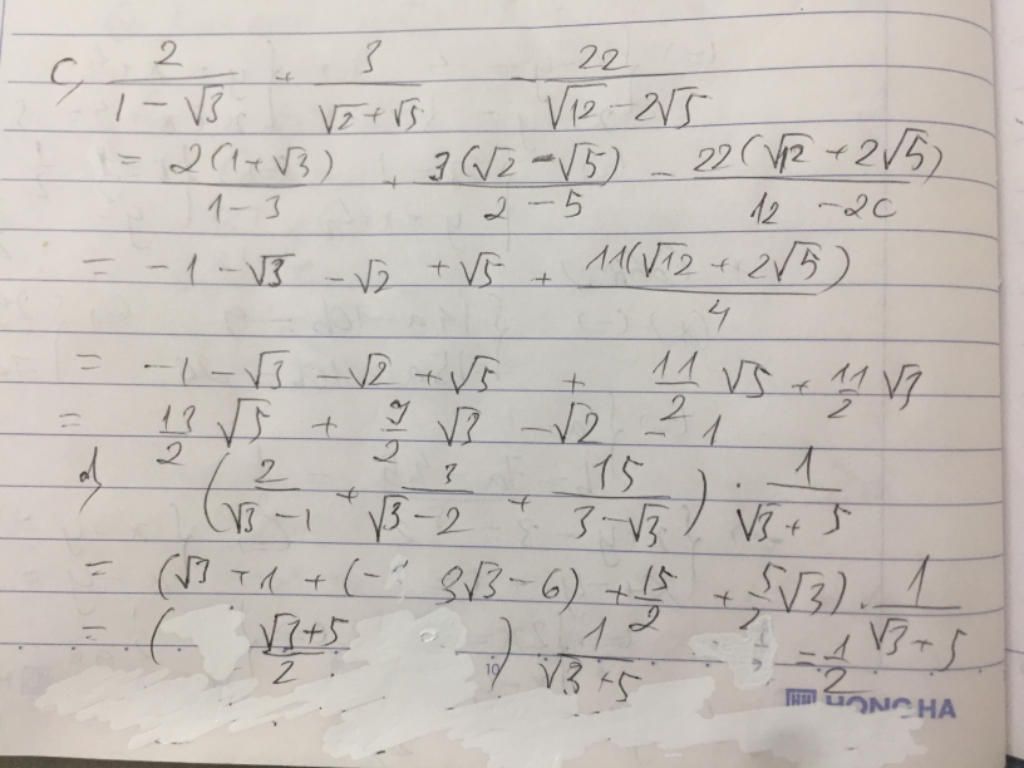 c, 2/(1 - √3) + 3/(√2 + √5) - 22/(√12 - 2√5)
= 2(1+√3)/(1-3) + 3(√2 - √5)/(2 - 5) - 22(√12 + 2√5)/(12 - 20)
= -1 - √3 - √2 + √5 + 11(√12 + 2√5)/4
= -1 - √3 - √2 + √5 + 11/2 √5 + 11/2 √3
= 13/2 √5 + 9/2 √3 - √2 - 1
d) (2/(√3 - 1) + 3/(√3 - 2) + 15/(3 - √3)) . 1/(√3 + 5)
= (√3 + 1 + (- 3√3 - 6) + 15/2 + 5/2 √3) . 1/(√3 + 5)
= ( (√3+5)/2 ) 1/(√3+5) = 1/2
10
HONG HA